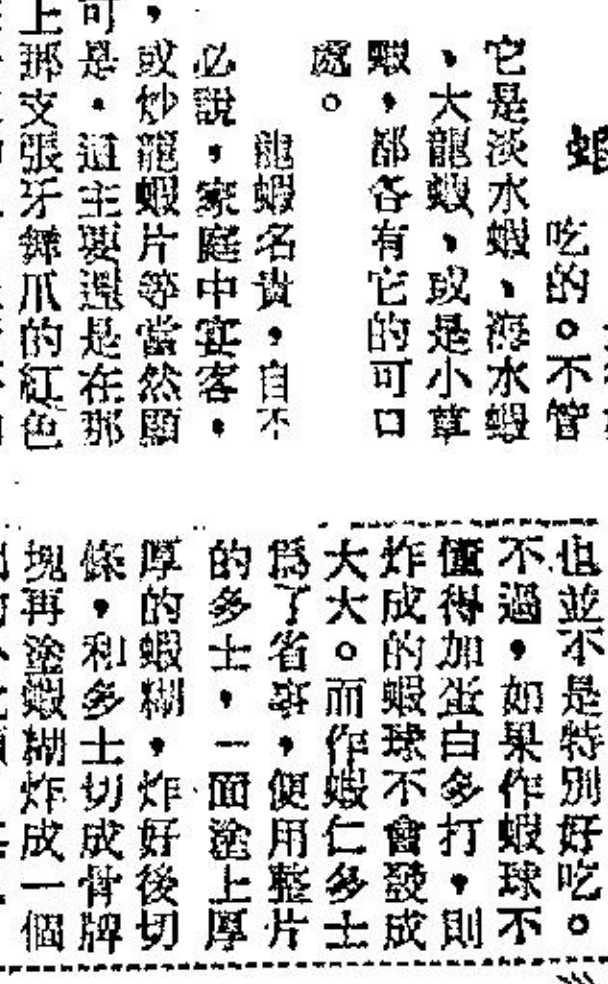 蝦
吃的。不管
它是淡水蝦、海水蝦
、大龍蝦、或是小草
蝦,都各有它的可口
處。
龍蝦名貴,自不
必說,家庭中宴客,
,或炒龍蝦片等當然顯
可是,這主要還是在那
上那支張牙舞爪的紅色
也並不是特別好吃。
不過,如果作蝦球不
懂得加蛋白多打,則
炸成的蝦球不會發成
大大。而作蝦仁多士
爲了省事,便用整片
的多士,一面塗上厚
厚的蝦糊,炸好後切
條,和多士切成骨牌
塊再塗蝦糊炸成一個